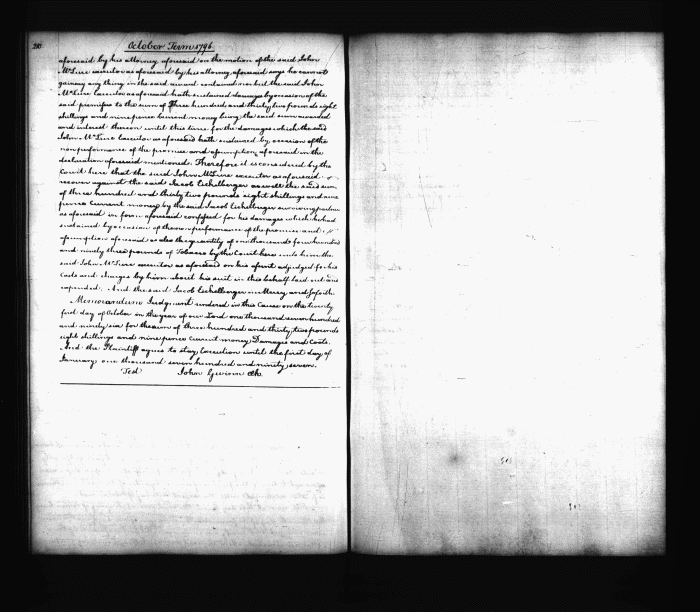 October Term 1796.
aforesaid by his attorney aforesaid on the motion of the said John
McLure executor as aforesaid by his attorney aforesaid says he cannot
gainsay any thing in the said award contained nor but the said John
McLure Executor as aforesaid hath sustained damages by occasion of the
said premises to the sum of Three hundred and thirty two pounds eight
shillings and nine pence Current money being the said sum awarded
and interest thereon until this time for the damages which the said
John McLure Executor as aforesaid hath sustained by occasion of the
nonperformance of the promise and assumption aforesaid in the
declaration aforesaid mentioned. Therefore it is considered by the
Court here that the said John McLure executor as aforesaid
recover against the said Jacob Eichelberger as well the said sum
of three hundred and thirty two pounds eight shillings and nine
pence Current money by the said Jacob Eichelberger surviving partner
as aforesaid in form aforesaid confessed for his damages which he had
sustained by occasion of the nonperformance of the promise and
assumption aforesaid as also the quantity of one thousand four hundred
and ninety three pounds of Tobacco by the Court here unto him the
said John McLure executor as aforesaid on his assent adjudged for his
Costs and charges by him about his suit in this behalf laid out and
expended. And the said Jacob Eichelberger in Mercy and so forth.
Memorandum Judgment rendered in this Cause on the twenty
first day of October in the year of our Lord one thousand seven hundred
and ninety six for the sum of three hundred and thirty two pounds
eight shillings and nine pence Current money Damages and Costs.
And the Plaintiff agrees to stay Execution until the first day of
January one thousand seven hundred and ninety seven.
Test John Gwinn Clk.